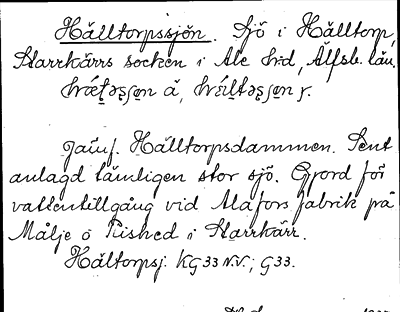 Hälltorpssjön. Sjö i Hälltorp,
Starrkärrs socken i Ale hd, Älfsb. län.
Jämf. Hälltorpsdammen. Sent
anlagd tämligen stor sjö. Gjord för
vattentillgång vid Alafors fabrik på
Målje o Rished i Starrkärr.
Hältorpsj. KG33 N.V.; G33.